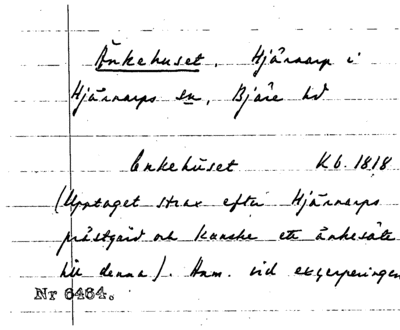 Änkehuset, Hjärnarp i
Hjärnarps sn, Bjäre hd
Enkehuset Kb. 1818
(Upptaget strax efter Hjärnarps
prästgård och kanske ett änkesäte
till denna). Anm. vid excerperingen
Nr 6484.